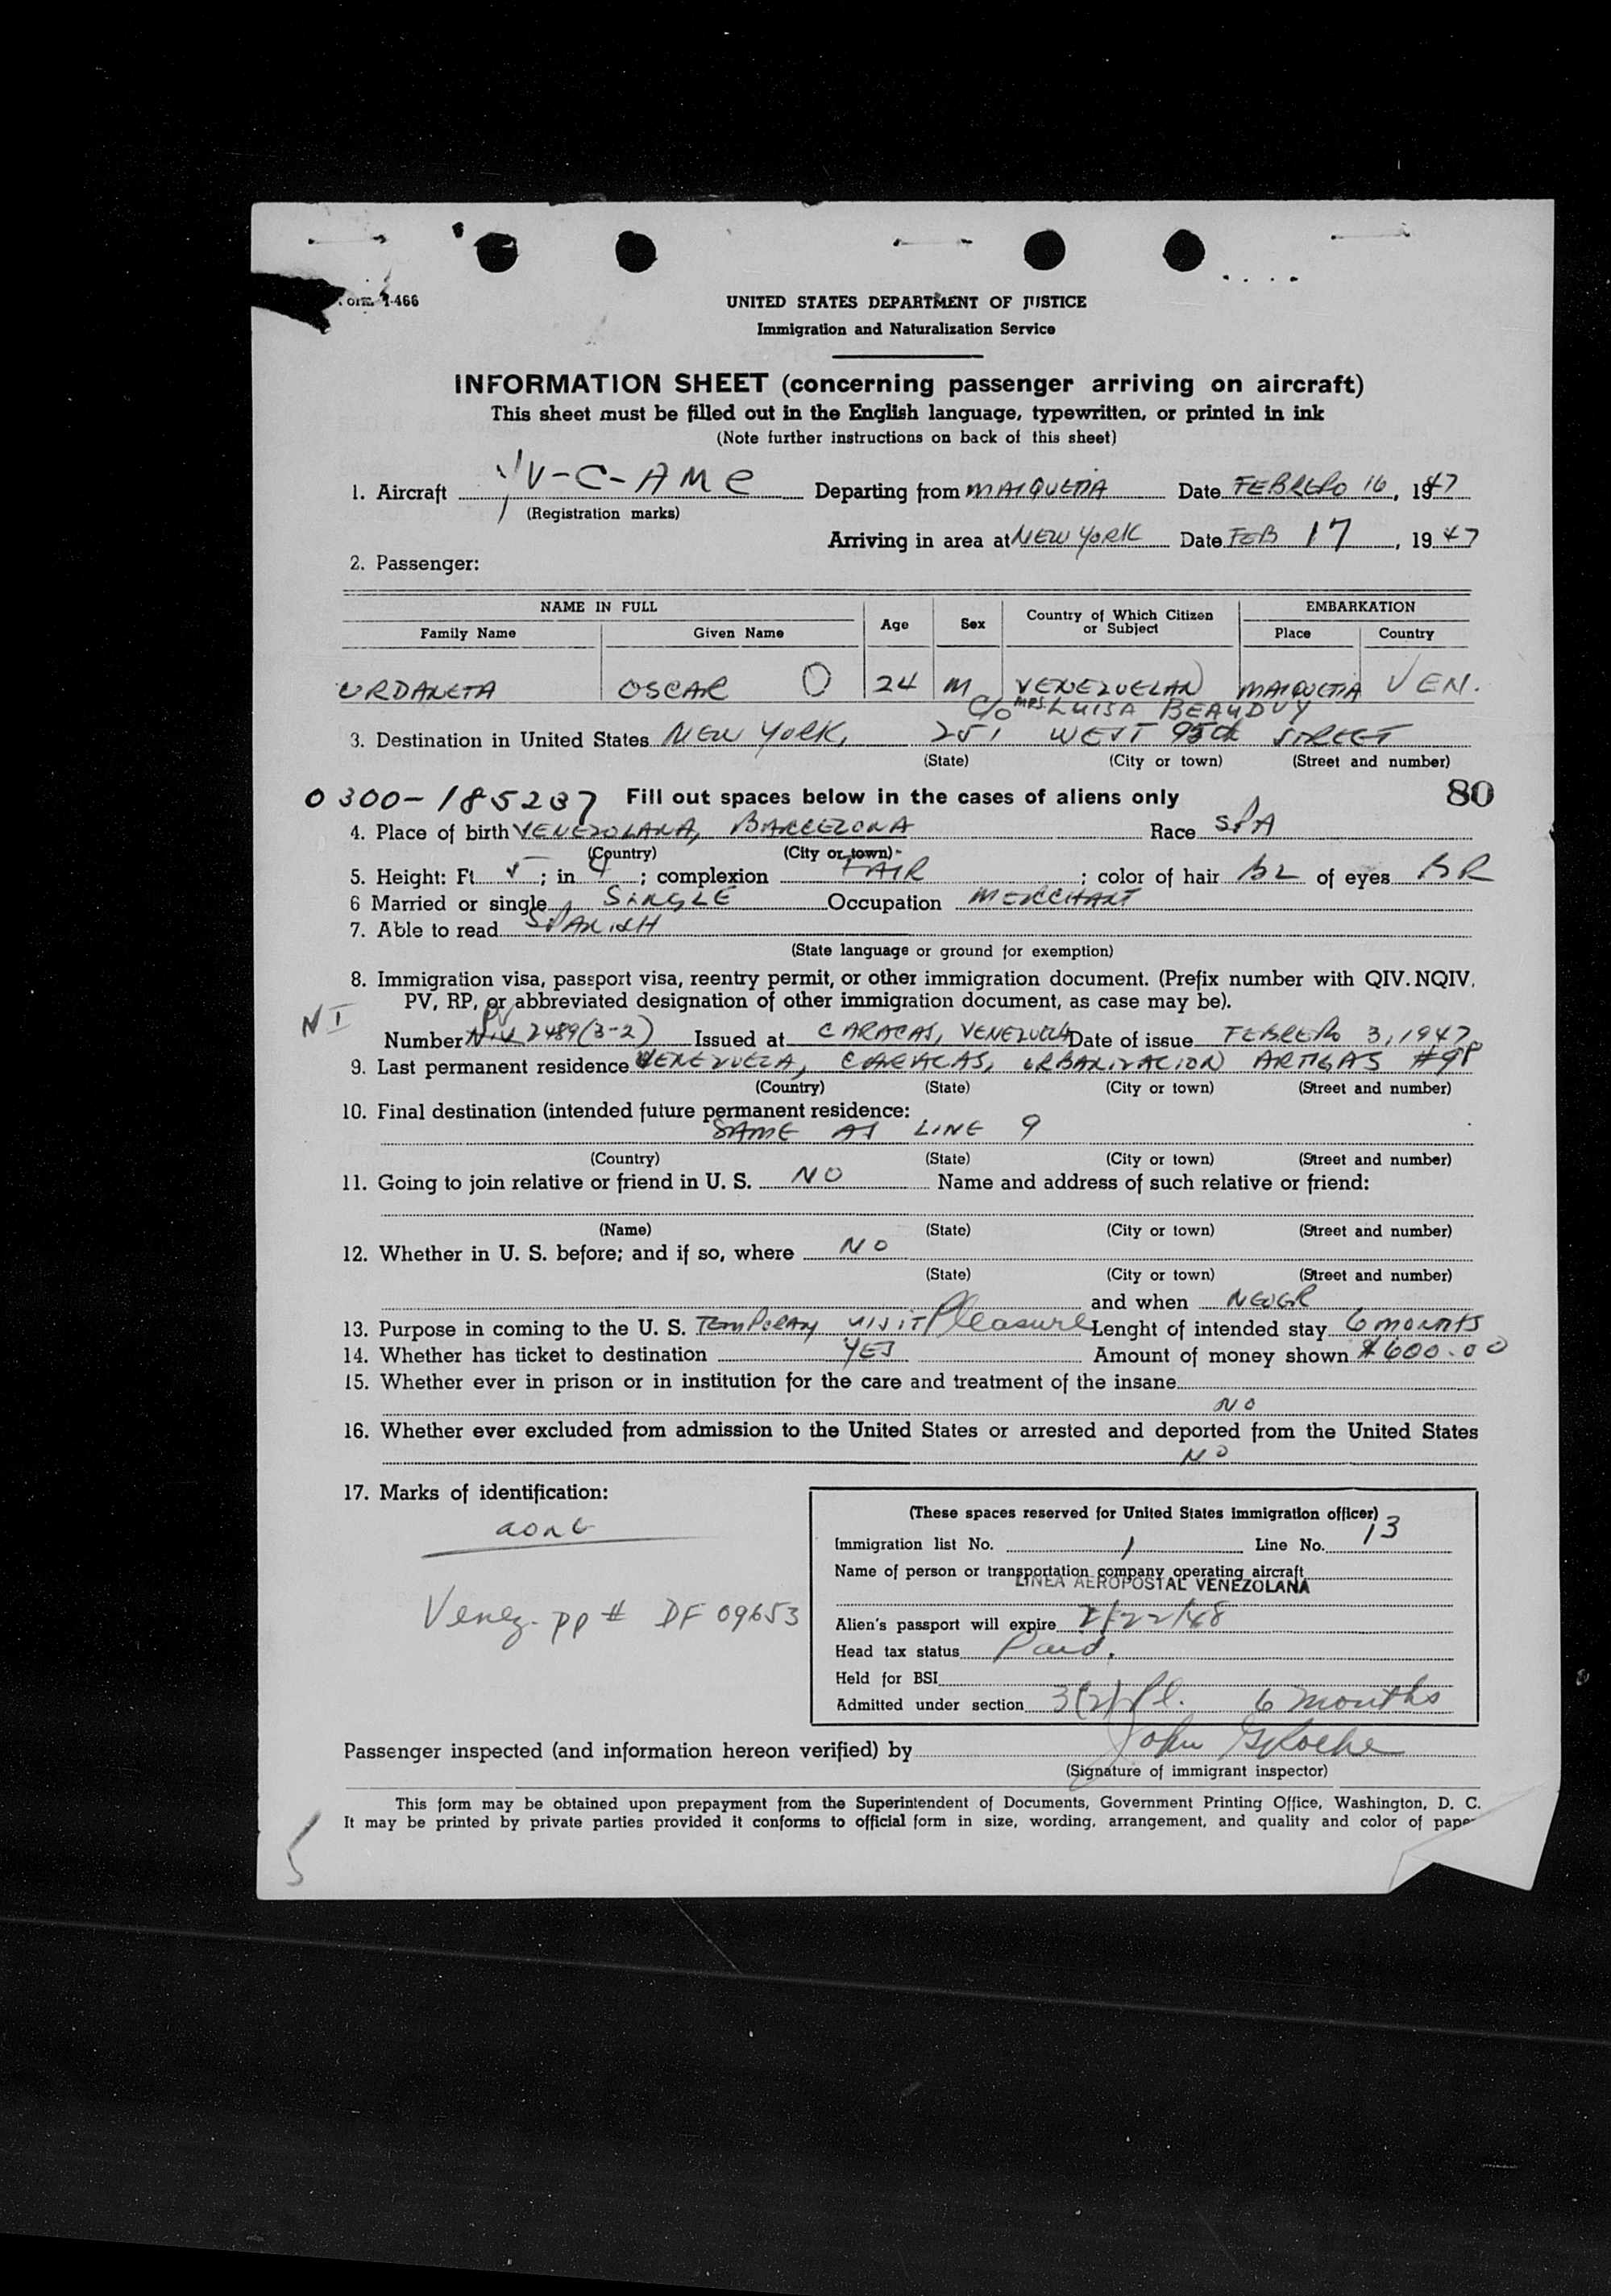 Form I-466
UNITED STATES DEPARTMENT OF JUSTICE
Immigration and Naturalization Service
INFORMATION SHEET (concerning passenger arriving on aircraft)
This sheet must be filled out in the English language, typewritten, or printed in ink
(Note further instructions on back of this sheet)
1. Aircraft YV-C-AME Departing from MAIQUETIA Date FEBRERO 16, 1947
(Registration marks)
Arriving in area at NEW YORK Date FEB 17, 1947
2. Passenger:
NAME IN FULL Age Sex Country of Which Citizen or Subject EMBARKATION
Family Name Given Name Place Country
URDANETA OSCAR O 24 M VENEZUELAN MAIQUETIA VEN.
C/o MRS. LUISA BEAUDUY
3. Destination in United States NEW YORK, 251 WEST 95th STREET
(State) (City or town) (Street and number)
0300-185237 Fill out spaces below in the cases of aliens only 80
4. Place of birth VENEZOLANA, BARCELONA Race SPA
(Country) (City or town)
5. Height: Ft. 5; in 4; complexion FAIR; color of hair BL of eyes BR
6 Married or single SINGLE Occupation MERCHANT
7. Able to read SPANISH
(State language or ground for exemption)
8. Immigration visa, passport visa, reentry permit, or other immigration document. (Prefix number with QIV. NQIV,
PV, RP, or abbreviated designation of other immigration document, as case may be).
NI
PV
Number 2489(3-2) Issued at CARACAS, VENEZUELA Date of issue FEBRERO 3, 1947
9. Last permanent residence VENEZUELA, CARACAS, URBANIZACION ARTIGAS #98
(Country) (State) (City or town) (Street and number)
10. Final destination (intended future permanent residence:
SAME AS LINE 9
(Country) (State) (City or town) (Street and number)
11. Going to join relative or friend in U. S. NO Name and address of such relative or friend:
(Name) (State) (City or town) (Street and number)
12. Whether in U. S. before; and if so, where NO
(State) (City or town) (Street and number)
and when NEVER
13. Purpose in coming to the U. S. TEMPORAY VISIT Pleasure Lenght of intended stay 6 MONTHS
14. Whether has ticket to destination YES Amount of money shown $600.00
15. Whether ever in prison or in institution for the care and treatment of the insane
NO
16. Whether ever excluded from admission to the United States or arrested and deported from the United States
NO
17. Marks of identification:
Venez. pp # DF 09653
(These spaces reserved for United States immigration officer)
Immigration list No. 1 Line No. 13
Name of person or transportation company operating aircraft
LINEA AEROPOSTAL VENEZOLANA
Alien's passport will expire 2/22/48
Head tax status Paid.
Held for BSI
Admitted under section 3(2) Pl. 6 months
Passenger inspected (and information hereon verified) by John G Roche
(Signature of immigrant inspector)
This form may be obtained upon prepayment from the Superintendent of Documents, Government Printing Office, Washington, D. C.
It may be printed by private parties provided it conforms to official form in size, wording, arrangement, and quality and color of paper